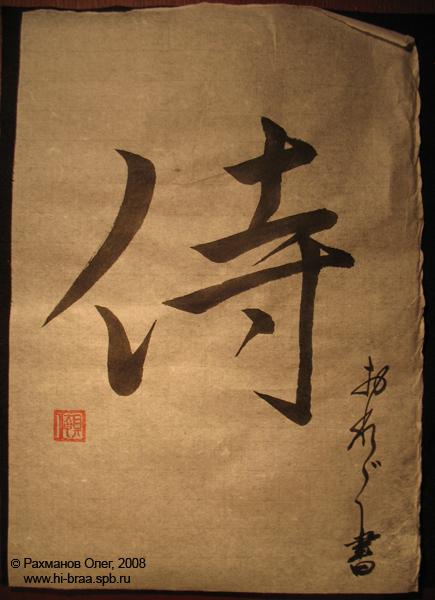 侍
おれぐ書
© Рахманов Олег, 2008
www.hi-braa.spb.ru